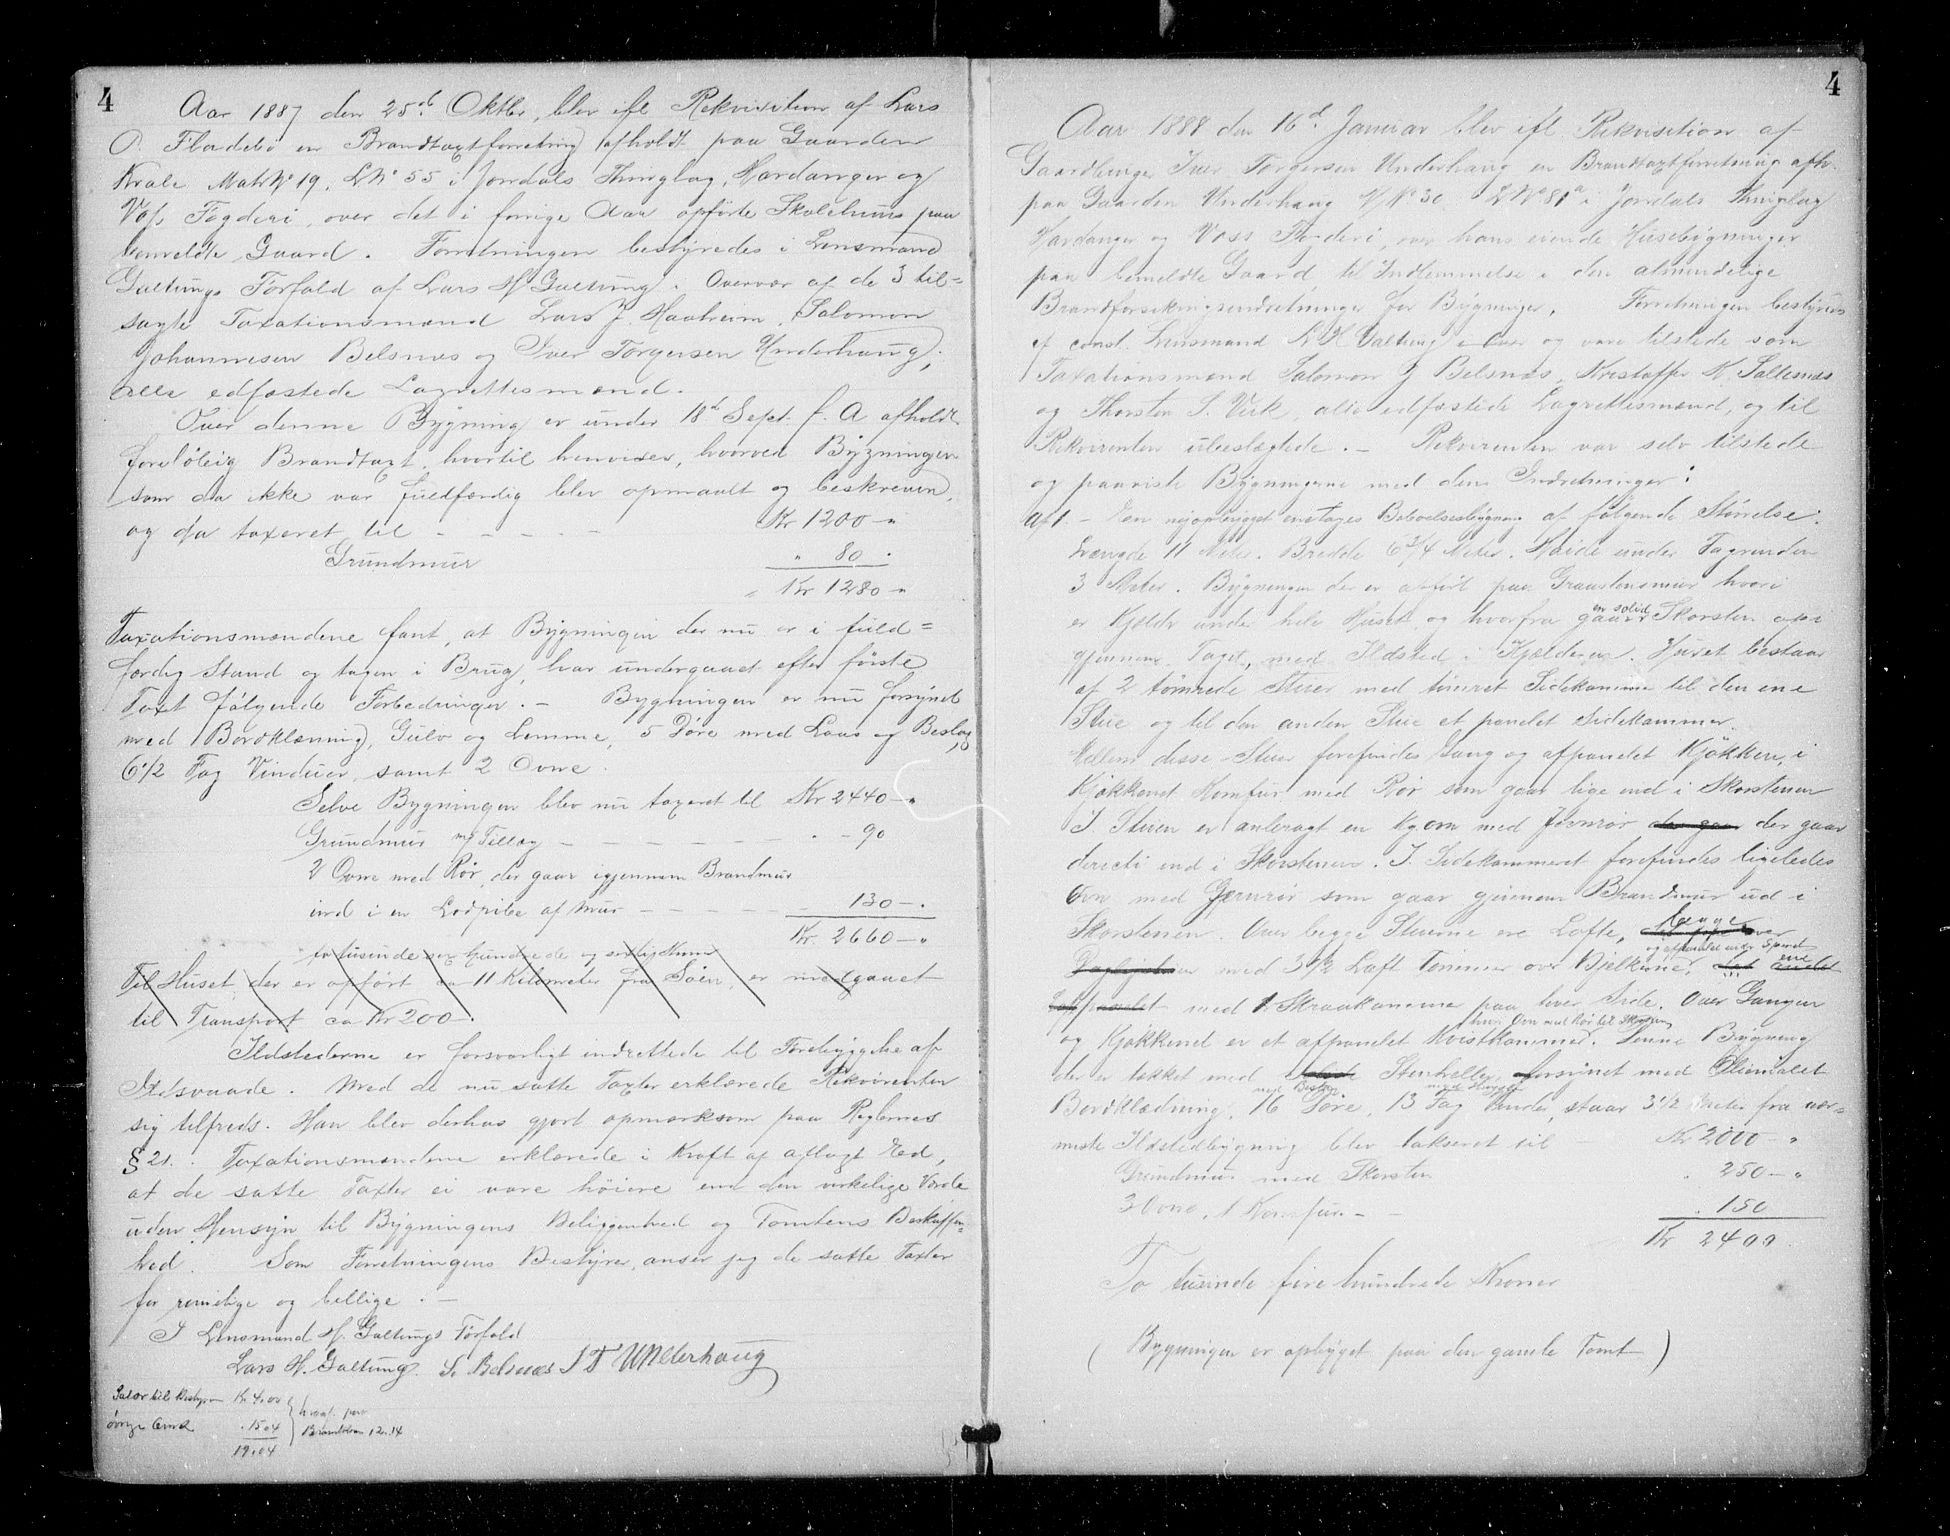 4
Aar 1887 den 25de Oktbr, blev ifl Rekvisition af Lars
O. Fladebö en Brandtaxtforretning afholdt paa Gaarden
Krále Matr No 19, L No 55 i Jondals Thinglag, Hardanger og
Voss Fogderi, over det i forrige Aar opförte Skolehuus paa
bemeldte Gaard. Forretningen bestyredes i Lensmand
Galtungs Forfald af Lars H Galtung i Overvær af de 3 til=
sagte Taxationsmænd Lars J. Haaheim, Salomon
Johannesen Belsnæs og Iver Torgersen Underhaug,
alle edfæstede Lagrettesmænd.
Over denne Bygning er under 18de Sept. f. A afholdt
foreløbig Brandtaxt, hvortil henvises, hvorved Bygningen
som da ikke var fuldfærdig blev opmaalt og beskreven,
og da taxeret til - - - - Kr 1200 - "
Grundmur " 80 "
" Kr 1280 - "
Taxationsmændene fandt, at Bygningen der nu er i fuld=
færdig Stand og tagen i Brug, har undergaaet efter første
Taxt følgende Forbedringer. - Bygningen er nu forsynet
med Bordklædning, Gulv og Lemme, 5 Döre med Laas og Beslag,
6 1/2 Fag Vinduer, samt 2 Ovne.
Selve Bygningen blev nu taxeret til Kr 2440 - "
Grundmur m/ Tillæg - - - - - - " - 90
2 Ovne med Rör, der gaar igjennem Brandmur
ind i en Lodpibe af Mur - - - - - 130 - "
Kr. 2660 - "
to tusinde sex hundrede og sextij Kroner
Til Huset, der er opført ca 11 Kilometer fra Söen, er medgaaet
til Transport ca Kr 200 -
Ildstederne er forsvarligt indrettede til Forebyggelse af
Ildsvaade. Med de nu satte Taxter erklærede Rekvirenten
sig tilfreds. Han blev derhos gjort opmærksom paa Reglernes
§ 21. Taxationsmændene erklærede i Kraft af aflagt Eed,
at de satte Taxter ei vare höiere end den virkelige Værdi
uden Hensyn til Bygningens Beliggenhed og Tomtens Beskaffen=
hed. Som Forretningens Bestyrer, anser jeg de satte Taxter
for rimelige og billige. -
I Lensmand H. Galtungs Forfald
Lars H. Galtung. S. Belsnæs I T Underhaug
Salær til Bestyreren Kr 4,00
övrige " 15,04
19,04
Brandtkassen 12.14
4
Aar 1888 den 16d Januar blev ifl Rekvisition af
Gaardbruger Iver Torgersen Underhaug en Brandtaxtforretning afh.
paa Gaarden Underhaug M No 30 L No 81a i Jondals Thinglag
Hardanger og Voss Fogderi, over hans eiende Husebygninger
paa bemeldte Gaard til Indlemmelse i den almindelige
Brandforsikringsindretninger for Bygninger. Forretningen bestyres
af const. Lensmand L H Galtung i Over og vare tilstede som
Taxationsmænd Salomon J Belsnæs, Kristoffer K. Sollesnæs
og Thorsten S. Virk, alle edfæstede Lagrettesmænd, og til
Rekvirenten ubeslægtede. - Rekvirenten var selv tilstede
og paaviste Bygningerne med dens Indretninger:
No 1. - En nyopbygget enetages Beboelsesbygning af følgende Størrelse:
Længde 11 Meter. Bredde 6 3/4 Meter. Høide under Tagrenden
3 Meter. Bygningen der er opført paa Graastensmur hvori
er Kjelder under hele Huset og hvorfra gaar en solid Skorsten op i
gjennem Taget, med Ildsted i Kjelderen. Huset bestaar
af 2 tømrede Stuer med tømret Sidekammer til den ene
Stue og til den anden Stue et panelet Sidekammer.
Mellem disse Stuer forefindes Gang og afpanelet Kjøkken, i
Kjøkkenet Komfur med Rør som gaar lige ind i Skorstenen
I Stuen er anbragt en Kg.ovn med Jernrør der gaar der gaar
directe ind i Skorstenen. I Sidekammeret forefindes ligeledes
Ovn med Jernrør som gaar gjennem Brandmur ud i
Skorstenen. Over begge Stuerne ere Lofte, begge over
og afpanelet under Spend
med 3 1/2 Loft Tømmer over Bjelkerne,
med 1 Skraakamme paa hver Side. Over Gangen
og Kjøkkenet er et afpanelet Kvistkammer. Denne Bygning
hvori Ovn med Rør til Skorsten
der er tækket med Stenheller, forsynet med Oliemalet
Bordklædning, 16 Døre, med Beslag 13 Fag Vinduer, staar 3 1/2 Meter fra nær=
meste Ildstedbygning blev takseret til - Kr 2000 - "
Grundmur med Skorsten " 250 - "
3 Ovne, 1 Komfur - - " 150
Kr 2400
To tusinde fire hundrede Kroner
(Bygningen er opbygget paa den gamle Tomt)